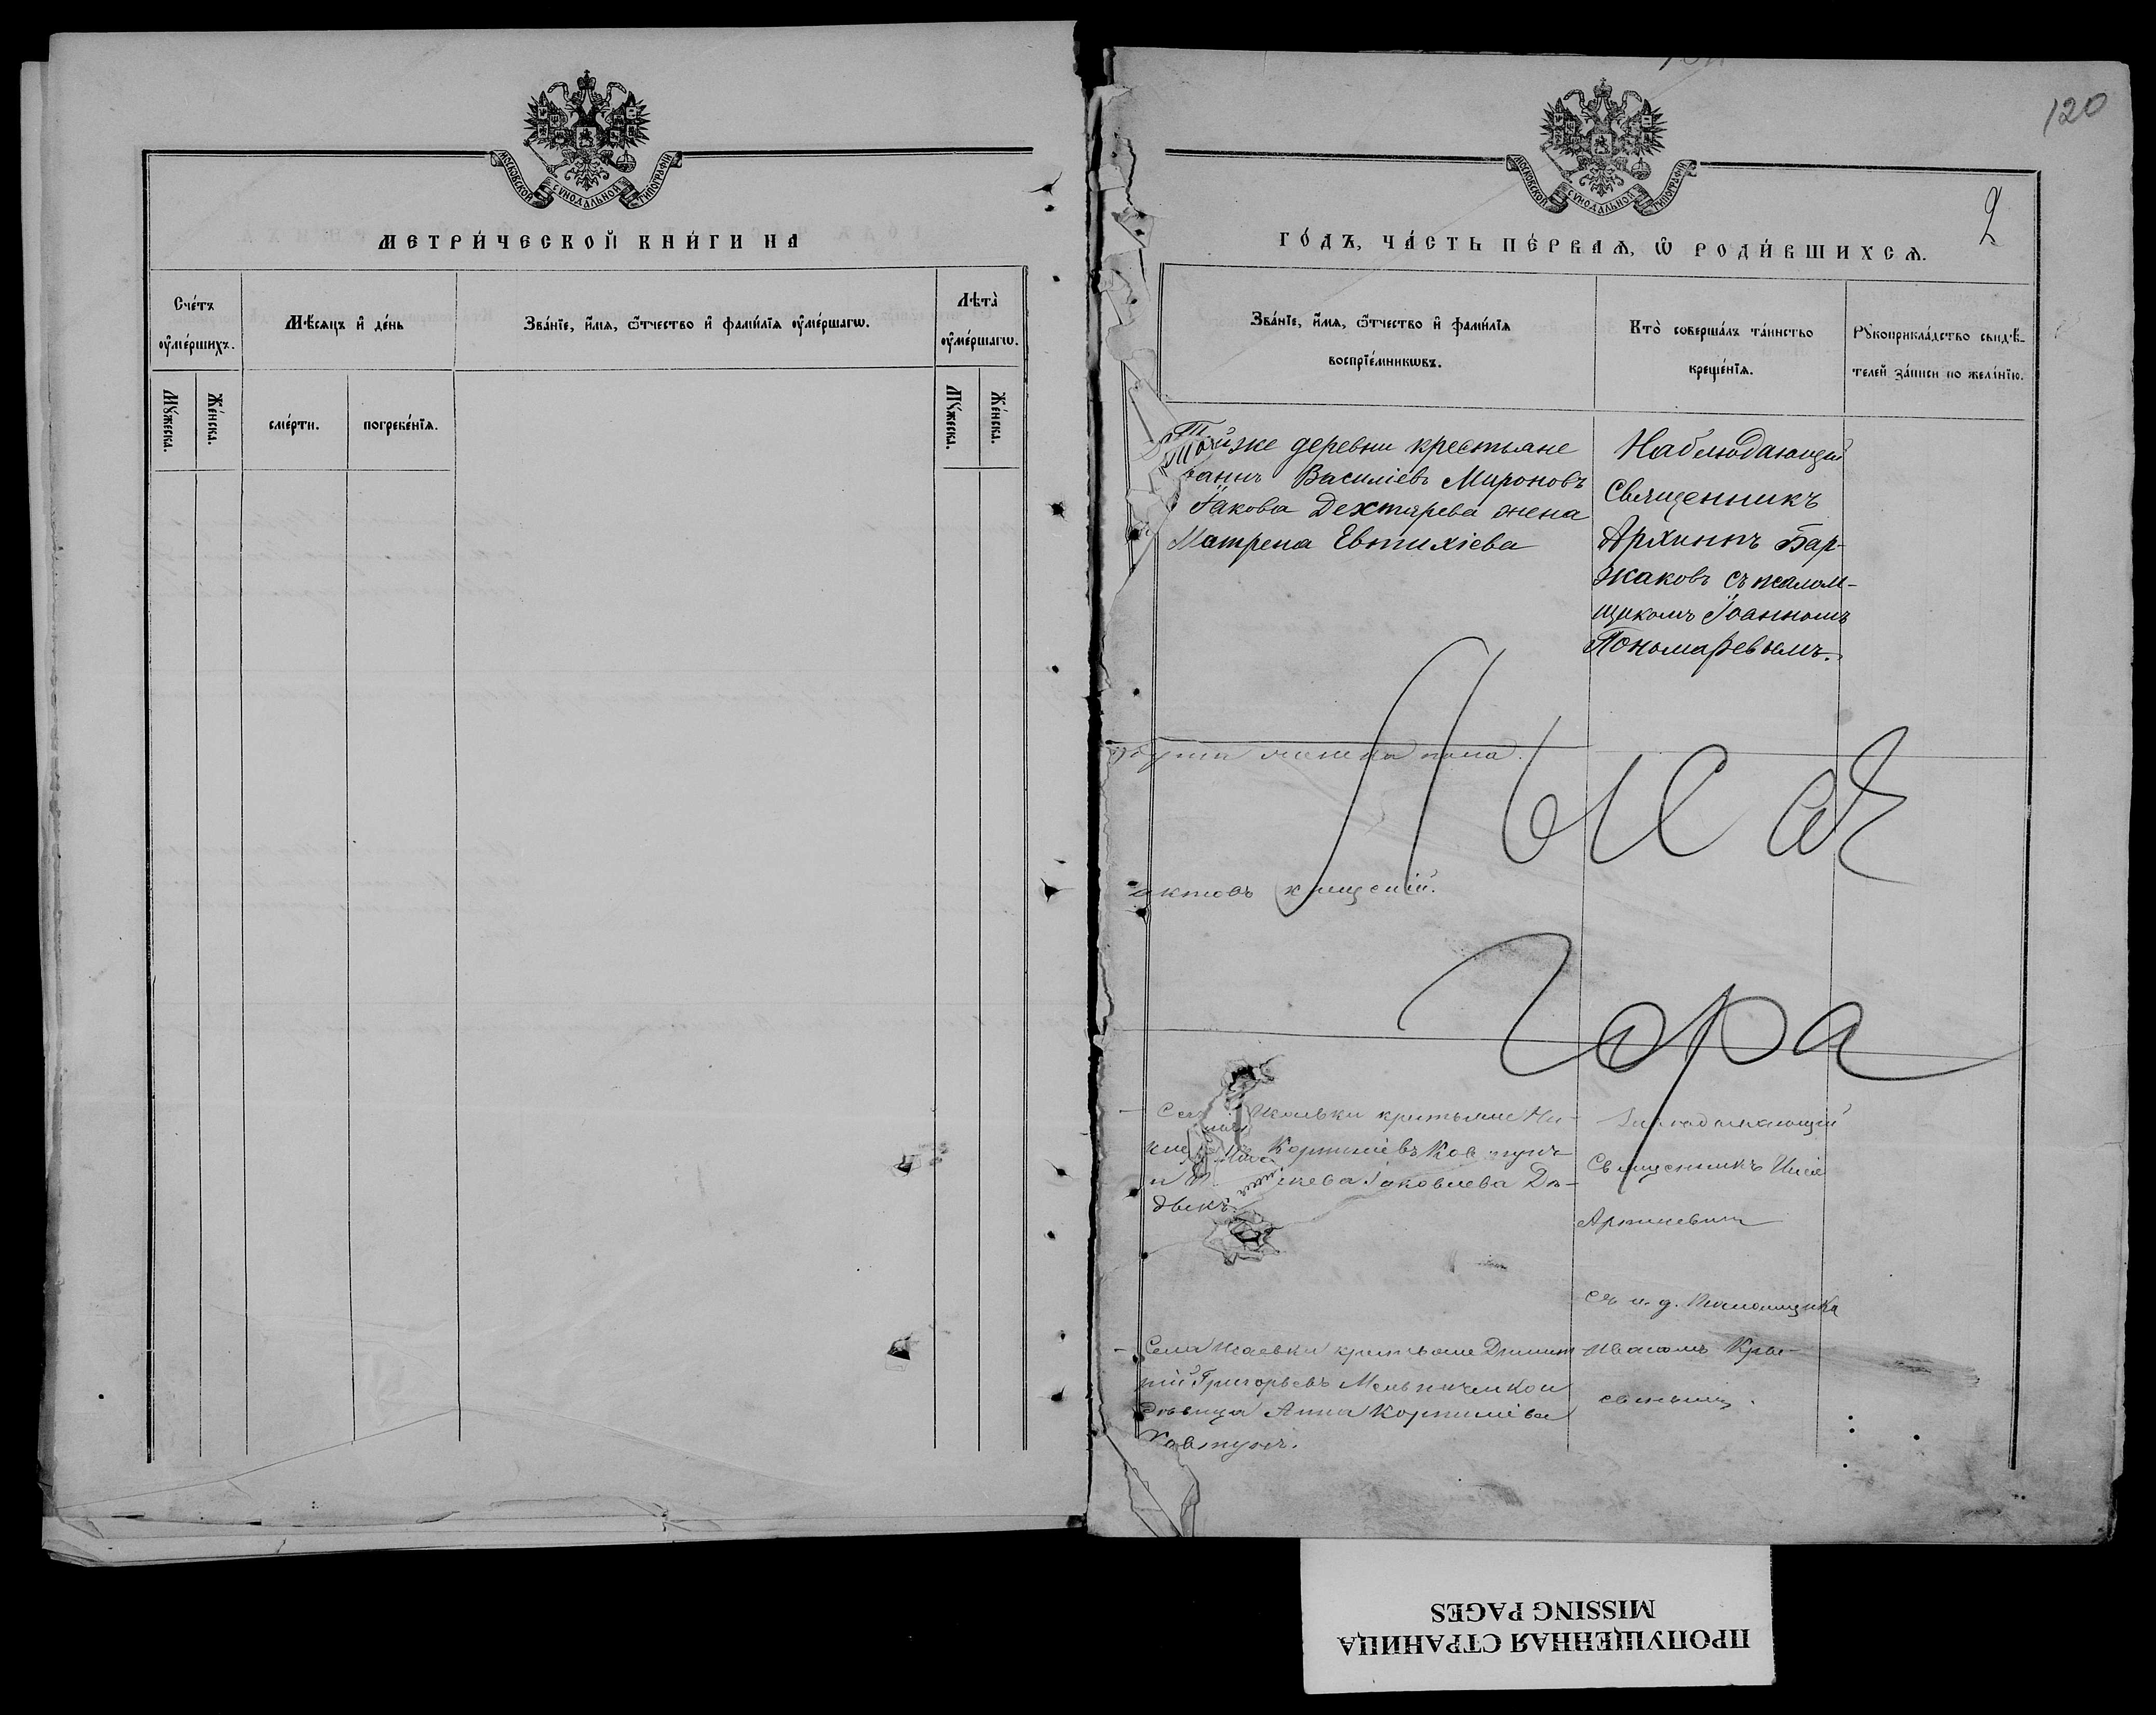 МОСКОВСКОЙ СѴНОДАЛЬНОЙ ТИПОГРАФІИ
МЕТРИ́ЧЕСКОЙ КНИ́ГИ НА
Сче́тъ ᲂу҆ме́ршихъ.
Мѣ́сяцъ и҆ де́нь
Зва́нїе, и҆́мя, ѻ҆́тчество и҆ фами́лїя ᲂу҆ме́ршагѡ.
Лѣта̀ ᲂу҆ме́ршагѡ.
Мꙋ́жеска.
Же́нска.
сме́рти.
погребе́нїя.
Мꙋ́жеска.
Же́нска.
120
2
МОСКОВСКОЙ СѴНОДАЛЬНОЙ ТИПОГРАФІИ
ГО́ДЪ, ЧА́СТЬ ПЕ́РВАѦ, Ѡ҆ РОДИ́ВШИХСѦ.
Зва́нїе, и҆́мя, ѻ҆́тчество и҆ фами́лїя
воспрїе́мникѡвъ.
Кто̀ соверша́лъ та́инство
креще́нїя.
Рꙋкоприкла́дство свидѣ́-
телей за́писи по жела́нїю.
Тойже деревни крестьяне
Василіевъ Мироновъ
Іакова Дехтярева жена
Матрена Евтихіева
Наблюдающій
Священникъ
Архиппъ Бар-
жаковъ съ псалом-
щикомъ Іоанномъ
Пономаревымъ.
Лысая
актовъ
Гора
крестьяне Ни-
Корниліевъ Ковтунъ
Іаковлева Дѣ-
Священникъ
съ и. д. псаломщика
Села Исаевки крестьяне Димит
рій Григорьевъ Мельниченко и
дѣвица Анна Корниліева
Ковтунъ.
Иваномъ Кры-
MISSING PAGES
ПРОПУЩЕННАЯ СТРАНИЦА